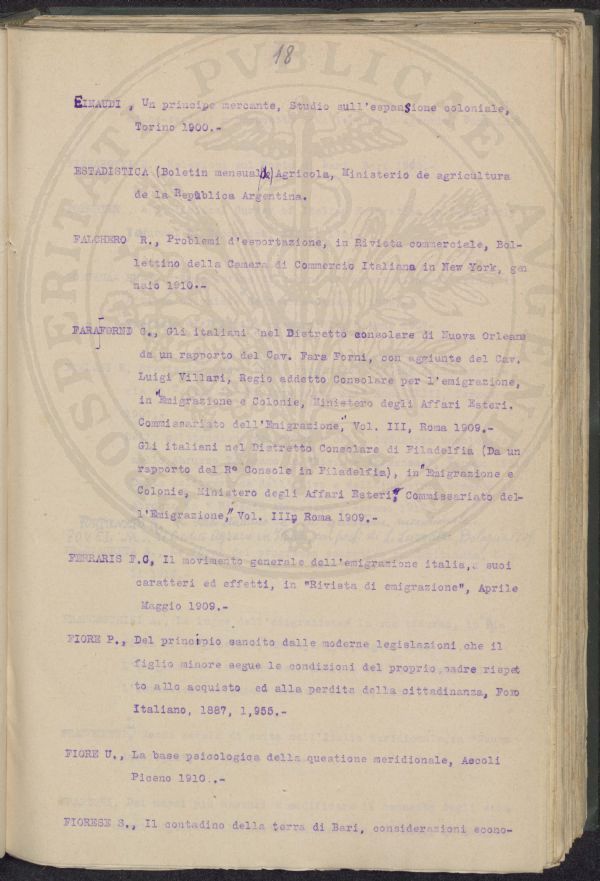 18
EINAUDI , Un principe mercante, Studio sull'espansione coloniale,
Torino 1900.-
ESTADISTICA (Boletin mensual de) Agricola, Ministerio de agricultura
de la Republica Argentina.
FALCHERO R., Problemi d'esportazione, in Rivista commerciale, Bol-
lettino della Camera di Commercio Italiana in New York, gen
naio 1910.-
FARAFORNI G., Gli italiani nel Distretto consolare di Nuova Orleans
da un rapporto del Cav. Fara Forni, con aggiunte del Cav.
Luigi Villari, Regio addetto Consolare per l'emigrazione,
in "Emigrazione e Colonie, Ministero degli Affari Esteri.
Commissariato dell'Emigrazione," Vol. III, Roma 1909.-
Gli italiani nel Distretto Consolare di Filadelfia (Da un
rapporto del R° Console in Filadelfia), in "Emigrazione e
Colonie, Ministero degli Affari Esteri, Commissariato del-
l'Emigrazione," Vol. III, Roma 1909.-
FERRARIS F.C, Il movimento generale dell'emigrazione italia, suoi
caratteri ed effetti, in "Rivista di emigrazione", Aprile
Maggio 1909.-
FIORE P., Del principio sancito dalle moderne legislazioni che il
figlio minore segue le condizioni del proprio padre rispet
to allo acquisto ed alla perdita della cittadinanza, Foro
Italiano, 1887, 1,955.-
FIORE U., La base psicologica della questione meridionale, Ascoli
Piceno 1910.-
FIORESE S., Il contadino della terra di Bari, considerazioni econo-
PVBLICAE
AVGENDAE
PROSPERITATI